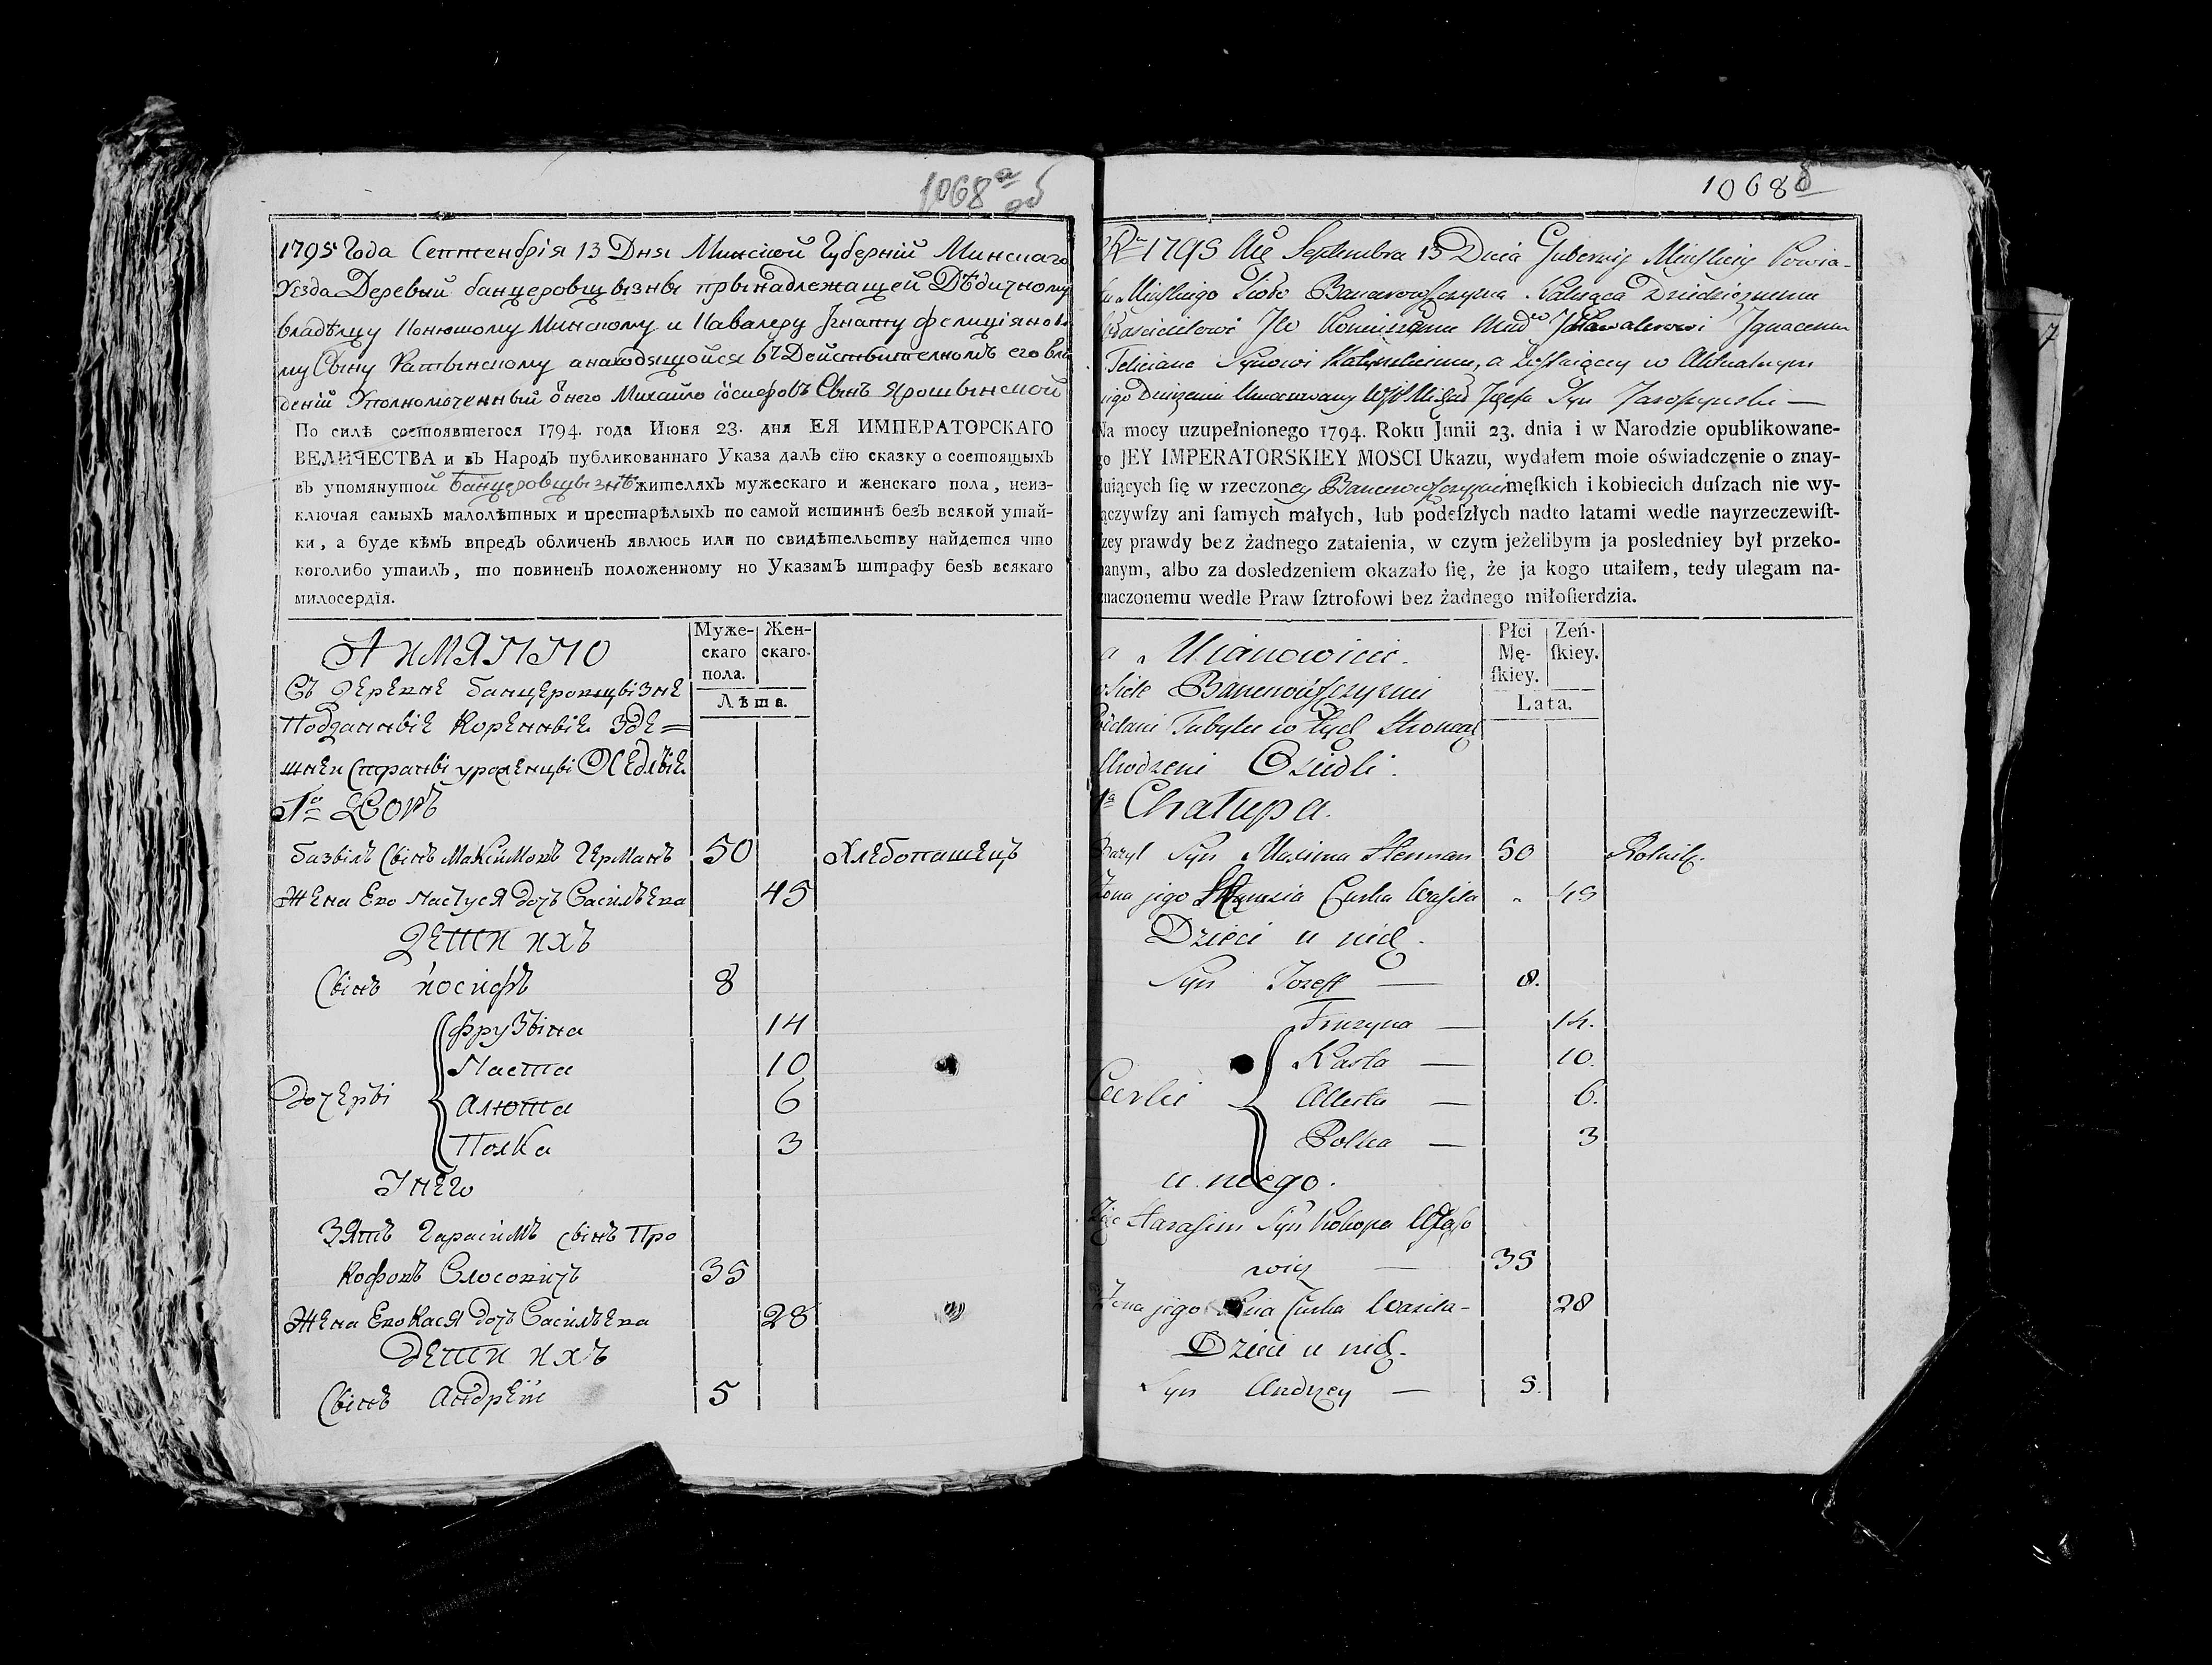 1068 а об
1795 Года Септембрія 13 Дня Минской Губерній Минскаго
Уезда Деревни банцеровщызны прынадлежащей Дѣдичному
владѣлцу Конюшому Минскому и Кавалеру Ігнату фелиціянову
му Сыну Ратынскому а находящойся въ Действителномъ его вла
деній Уполномоченный онего Михайло іосифовъ Сынъ Ярошынской
По силѣ состоявшегося 1794. года Июня 23. дня ЕЯ ИМПЕРАТОРСКАГО
ВЕЛИЧЕСТВА и въ Народъ публикованнаго Указа далъ сїю сказку о состоящыхъ
въ упомянутой Банцеровщызнѣ жителяхъ мужескаго и женскаго пола, неиз-
ключая самыхъ малолѣтных и престарѣлыхъ по самой истиннѣ безъ всякой утай-
ки, а буде кѣмъ впредъ обличенъ явлюсь или по свидѣтельству найдется что
коголибо утаилъ, то повиненъ положенному но Указамъ штрафу безъ всякаго
милосердїя.
А имянно
Муже-
скаго
пола.
Жен-
скаго.
Лѣта.
Съ деревне банцеровщызне
Подданные коренные зде=
шнеи Страны уроженцы Оседлые
1й Дворъ
базылъ Сынъ Максимовъ Германъ 50 Хлебопашецъ
Жена Его Настуся дочъ Василъева 45
Дети ихъ
Сынъ иосифъ 8
Дочеры
Фрузына 14
Наста 10
Алюта 6
Полка 3
У него
Зять Гарасимъ сынъ Про
кофовъ Слосовичъ 35
Жена Его Кася дочъ Василъева 28
Дети ихъ
Сынъ Андрей 5
1068 б
Rku 1795 Mca Septembra 13 Dnia Gubernij Minskiey Powia-
tu Minskiego Sioło Bancerowszczyzna Należąca Dziedzicznemu
Właścicielowi JW Koniuszemu Kawalerowi Ignacemu
Feliciana Synowi Ratynskiemu, a w Aktualnym
jego Dzierżeniu Umocowany Michał Jozefa Syn Jaroszynski —
Na mocy uzupełnionego 1794. Roku Junii 23. dnia i w Narodzie opublikowane-
go JEY IMPERATORSKIEY MOSCI Ukazu, wydałem moie oświadczenie o znay-
duiących ſię w rzeczoney Bancerowszczyznie męſkich i kobiecich duſzach nie wy-
łączywſzy ani ſamych małych, lub podeſzłych nadto latami wedle nayrzeczewiſt-
szey prawdy bez żadnego zataienia, w czym jeżelibym ja posledniey był przeko-
nanym, albo za dosledzeniem okazało ſię, że ja kogo utaiłem, tedy ulegam na-
znaczonemu wedle Praw ſztrofowi bez żadnego miłoſierdzia.
a Mianowicie.
Płci
Mę-
ſkiey.
Zeń-
ſkiey.
Lata.
w Siele Bancerowszczyznie
Poddani Tubylcy w tych Stronach
Urodzeni Osiedli.
1a Chałupa.
Bazyl Syn Maxima Herman 50 Rolnik.
Zona jego Córka Wasila 45
Dzieci u nich.
Syn Jozeff — 8.
Curki
Fruzyna — 14.
Nasta — 10.
Aluta — 6.
Polka — 3
u niego.
Zięć Harasim Syn Prokopa
wicz — 35
Zona jego Córka Wasila- 28
Dzieci u nich.
Syn Andrzey — 5.